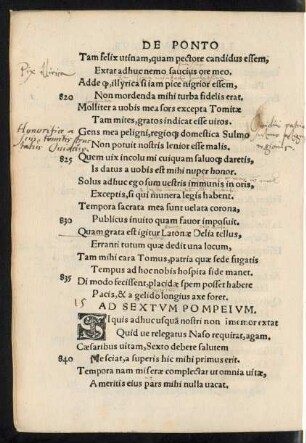 DE PONTO
Tam felix utinam, quam pectore candidus essem,
Extat adhuc nemo saucius ore meo.
Adde q, illyrica si iam pice nigrior essem,
820 Non mordenda mihi turba fidelis erat.
Molliter a uobis mea sors excepta Tomitæ
Tam mites, gratos indicat esse uiros.
Gens mea peligni, regioq; domestica Sulmo
Non potuit nostris lenior esse malis.
825 Quem uix incolumi cuiquam saluoq; daretis,
Is datus a uobis est mihi nuper honor.
Solus adhuc ego sum uestris immunis in oris,
Exceptis, si qui munera legis habent.
Tempora sacrata mea sunt uelata corona,
830 Publicus inuito quam fauor imposuit.
Quam grata est igitur Latonæ Delia tellus,
Erranti tutum quæ dedit una locum,
Tam mihi cara Tomus, patria quæ sede fugatis
Tempus ad hoc nobis hospita fide manet.
835 Di modo fecissent, placidæ spem posset habere
Pacis, & a gelido longius axe foret.
15 AD SEXTVM POMPEIVM.
SI quis adhuc usquã nostri non immemor extat
Quid ue relegatus Naso requirat, agam,
Cæsaribus uitam, Sexto debere salutem
840 Me sciat, a superis hic mihi primus erit.
Tempora nam miseræ complectar ut omnia uitæ,
A meritis eius pars mihi nulla uacat.